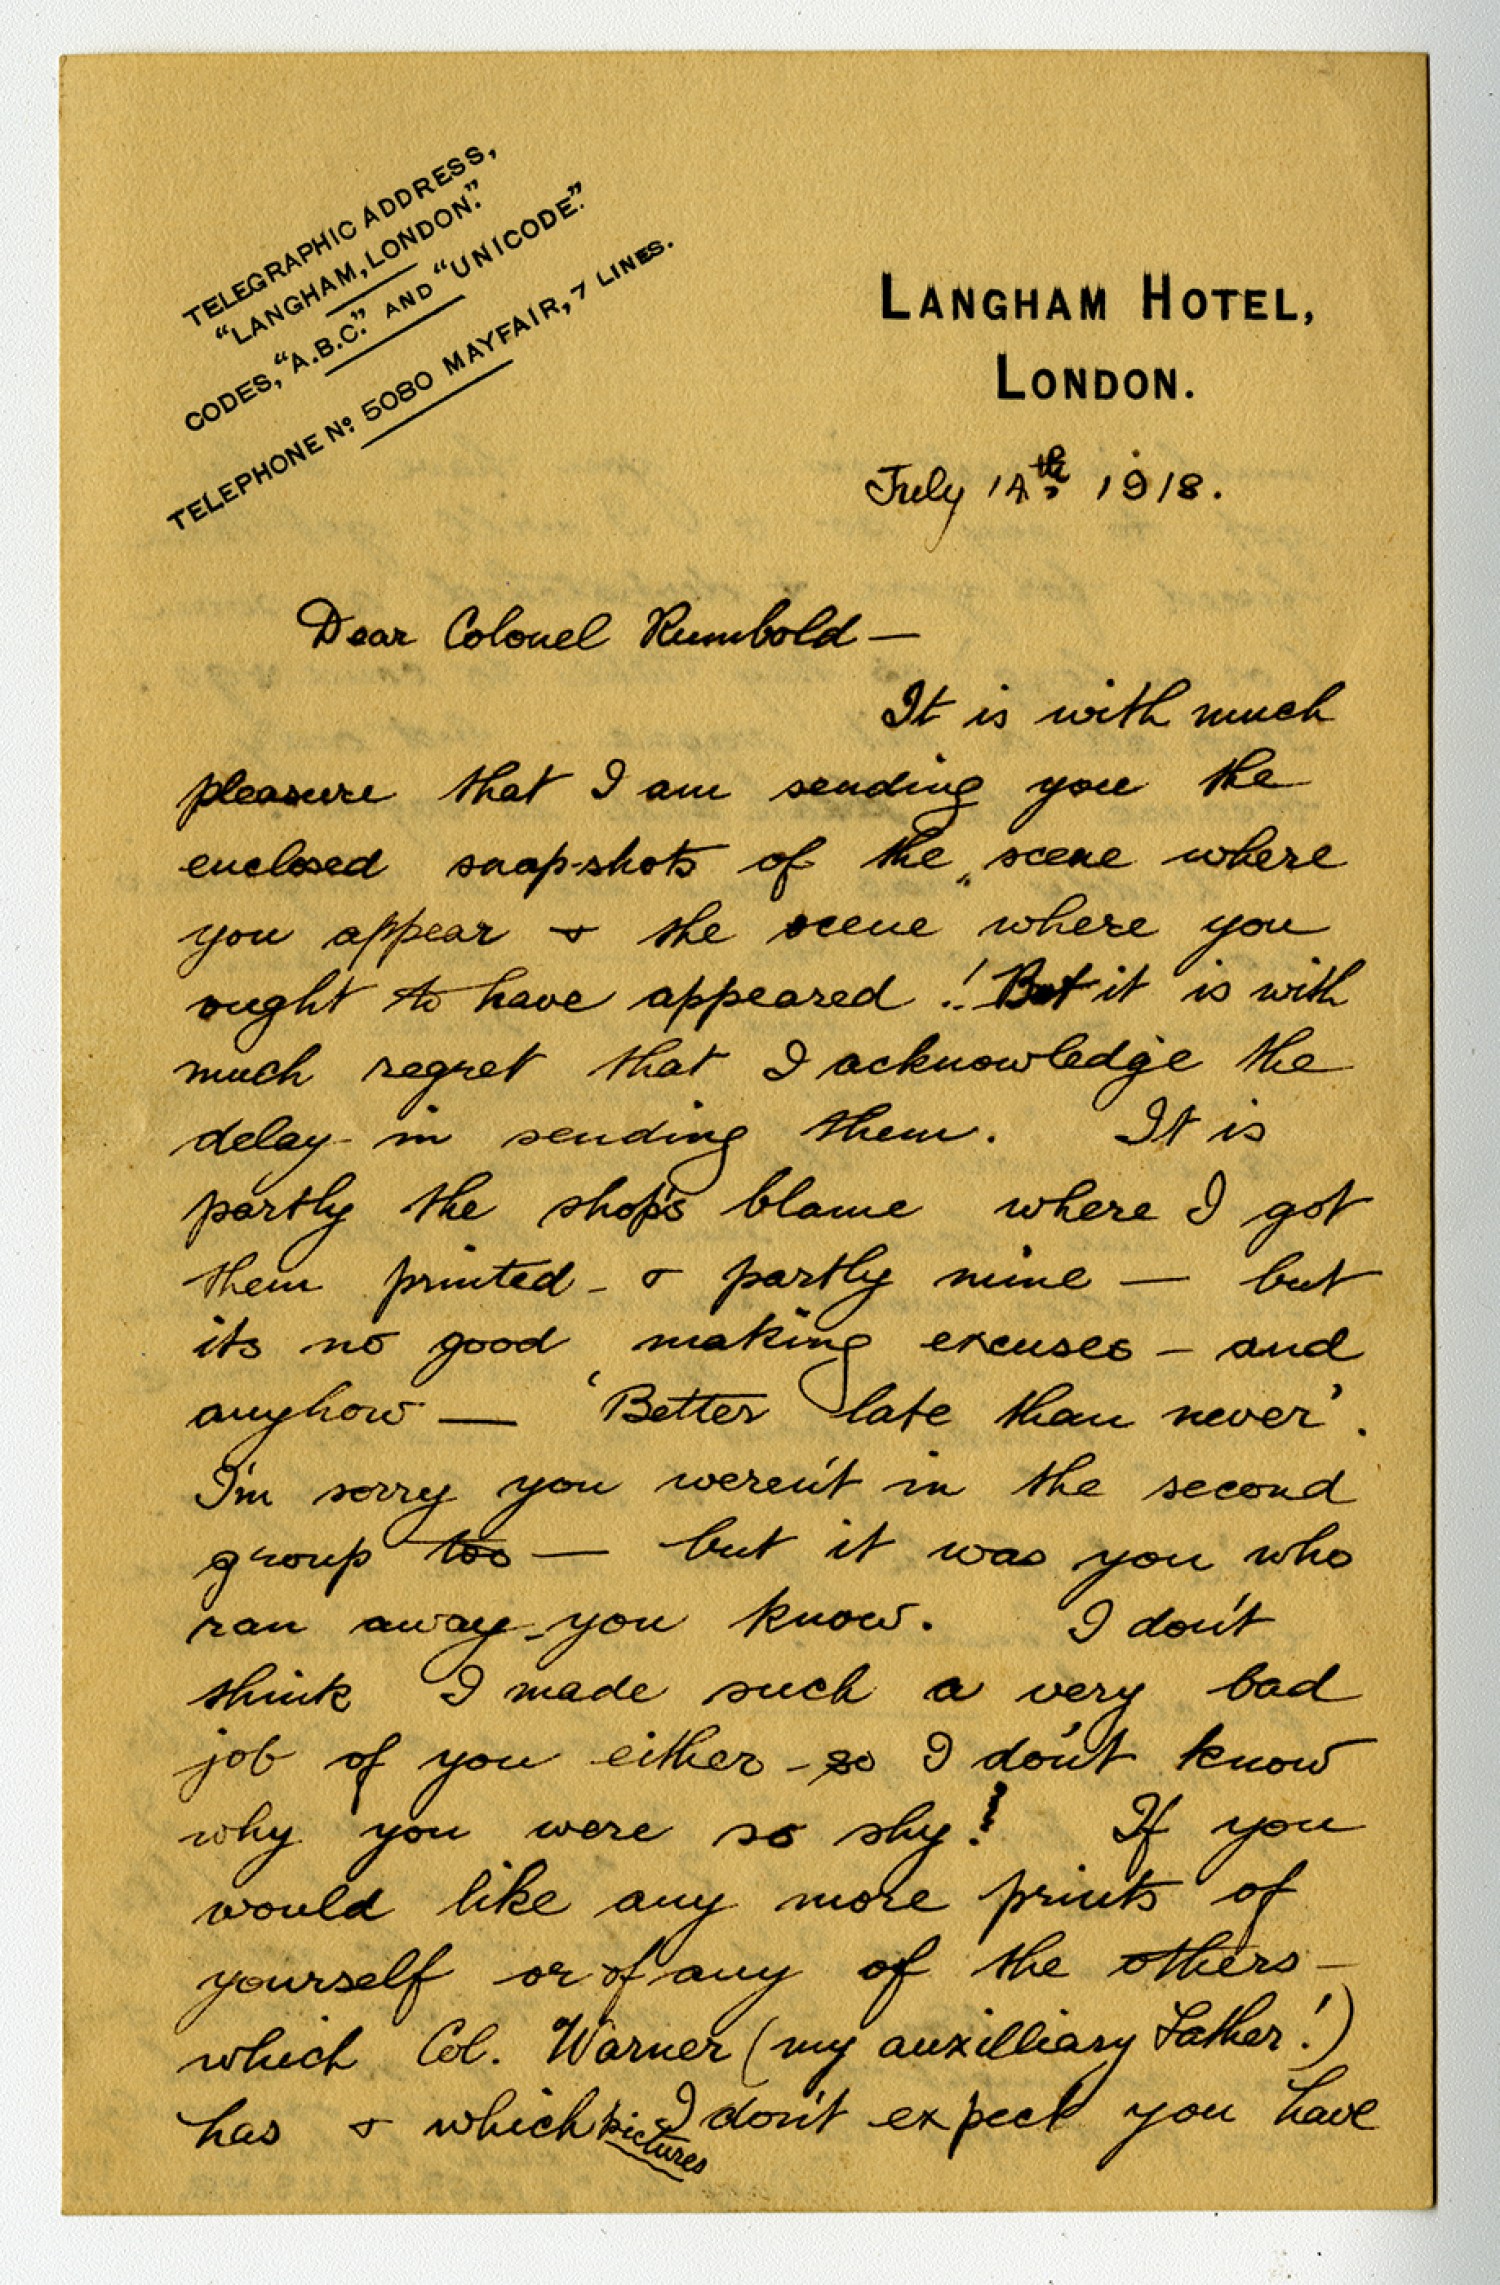 TELEGRAPHIC ADDRESS,
"LANGHAM, LONDON."
CODES, "A.B.C." AND "UNICODE."
TELEPHONE No. 5080 MAYFAIR, 7 LINES.
LANGHAM HOTEL,
LONDON.
July 14th 1918.
Dear Colonel Rumbold —
It is with much
pleasure that I am sending you the
enclosed snap-shots of the scene where
you appear & the scene where you
ought to have appeared! But it is with
much regret that I acknowledge the
delay in sending them. It is
partly the shop's blame where I got
them printed - & partly mine — but
its no good making excuses - and
anyhow — 'Better late than never'.
I'm sorry you weren't in the second
group too — but it was you who
ran away - you know. I don't
think I made such a very bad
job of you either - so I don't know
why you were so shy! If you
would like any more prints of
yourself or of any of the others -
which Col. Warner (my auxilliary Father!)
has & which pictures I don't expect you have